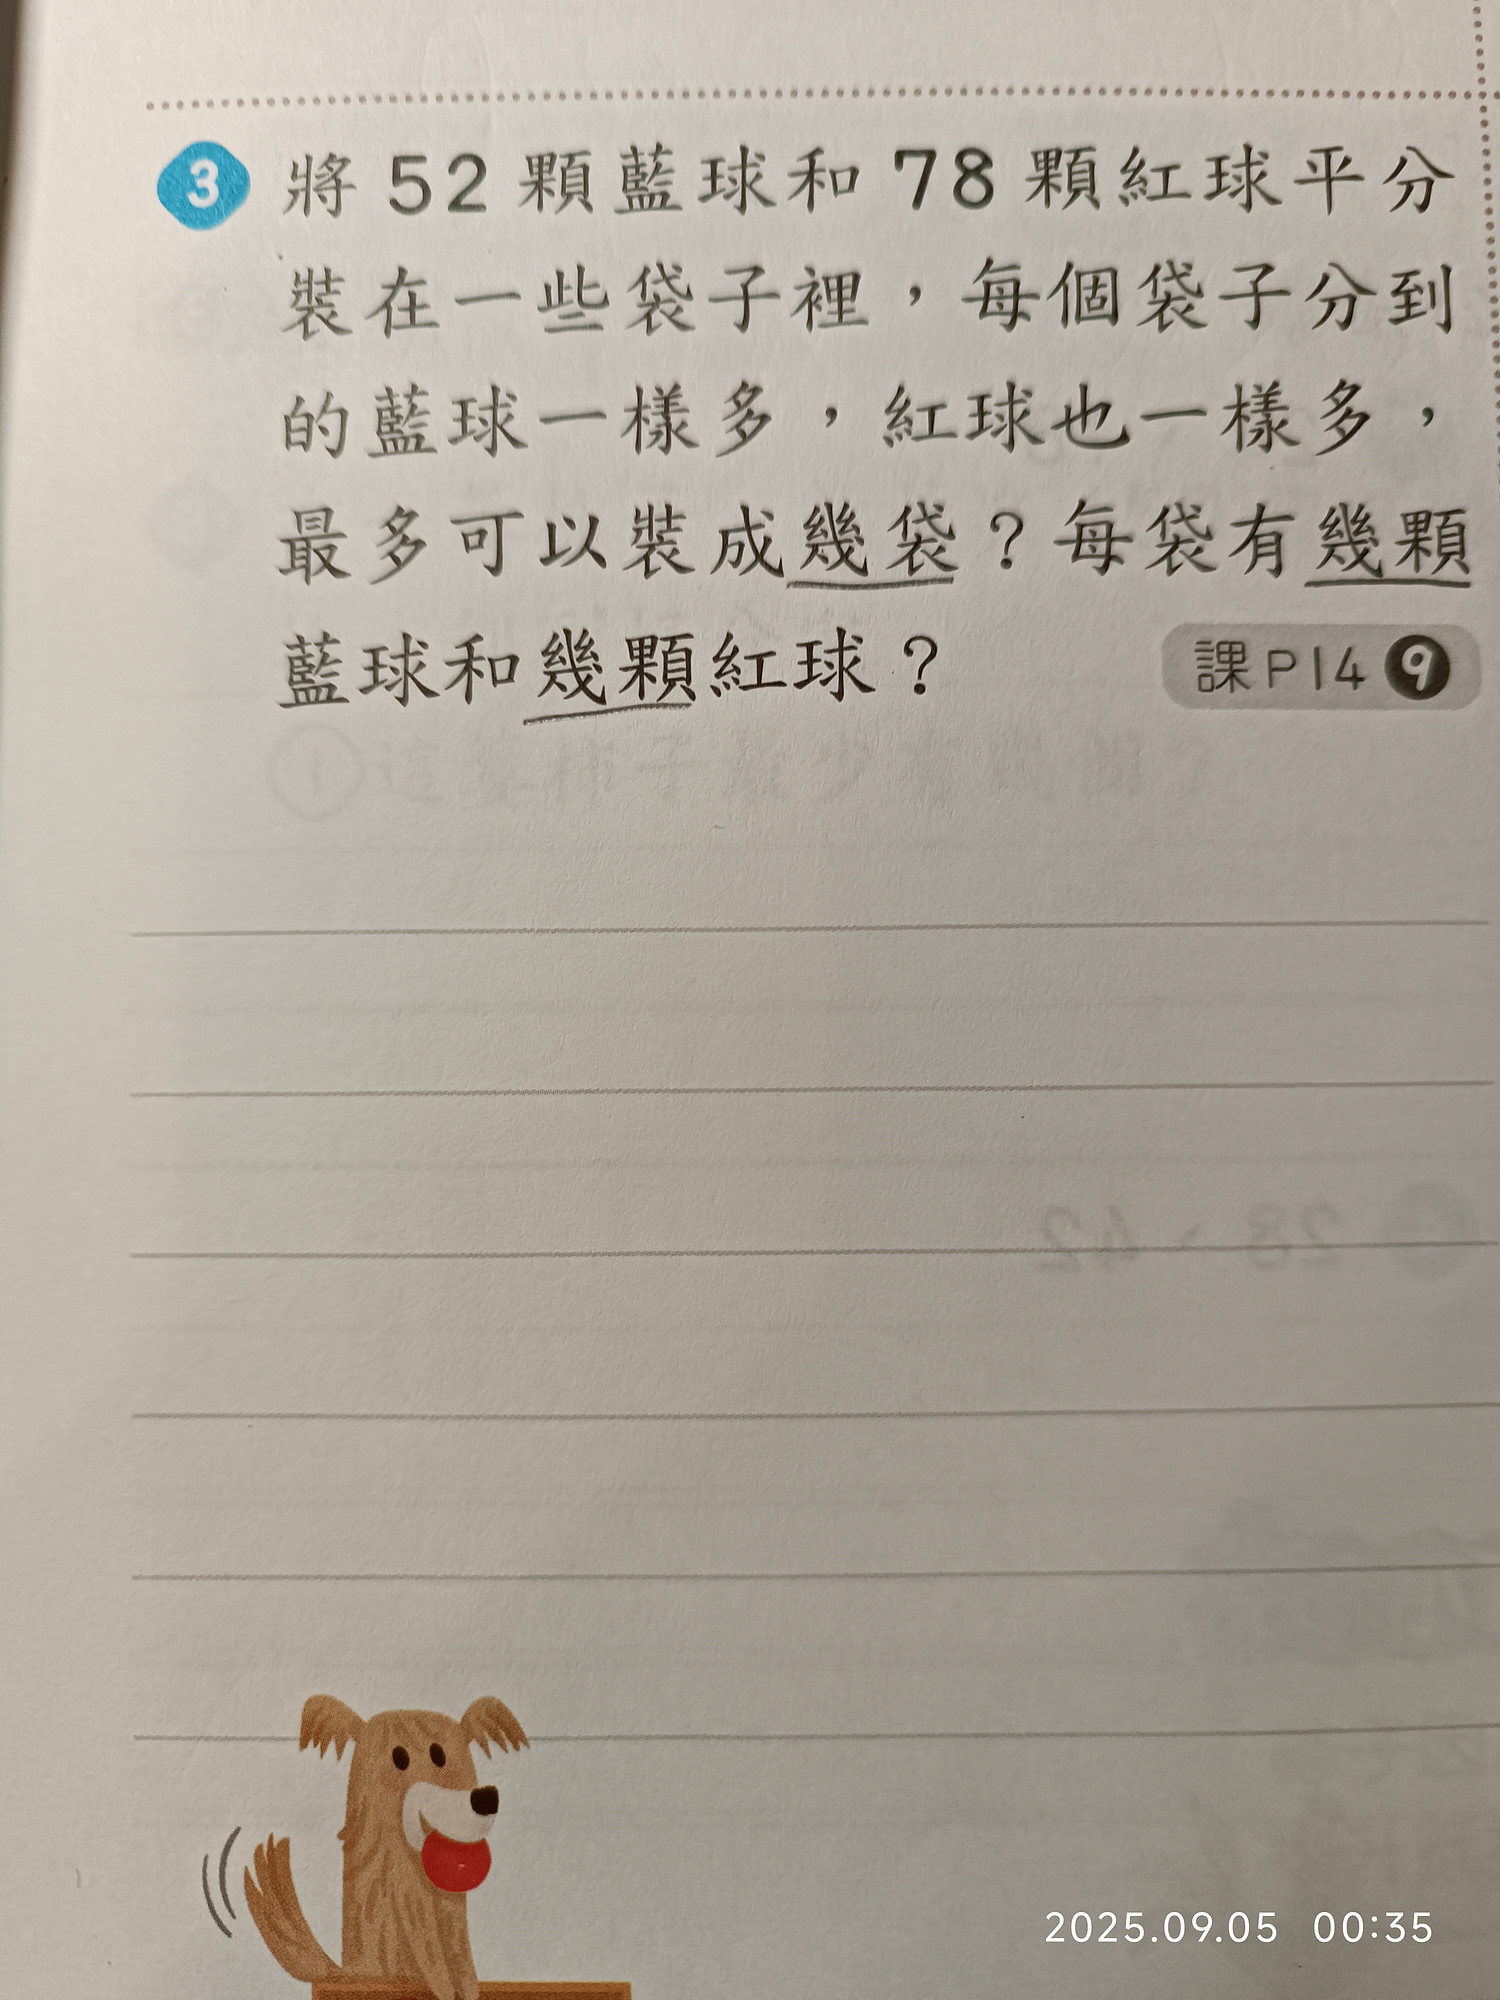 3 將52顆藍球和78顆紅球平分
裝在一些袋子裡，每個袋子分到
的藍球一樣多，紅球也一樣多，
最多可以裝成幾袋？每袋有幾顆
藍球和幾顆紅球？ 課P14 9
28、42
2025.09.05 00:35